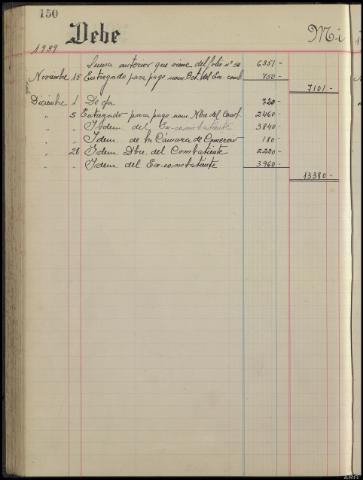 150
Debe
Mi
1939
Suma anterior que viene del folio nº 50 6351-
Noviembre 15 Entregado para pago nom Oct. del Ex comb 750-
7101-
Diciembre 1 De fra 720-
" 5 Entregado para pago nom Nbre del Comb. 2460
" " Idem del Ex-combatiente 3840
" " Idem de la Camara de Comercio 180-
" 28 Idem Dbre. del Combatiente 2220-
" " Idem del Ex-combatiente 3960-
13380-